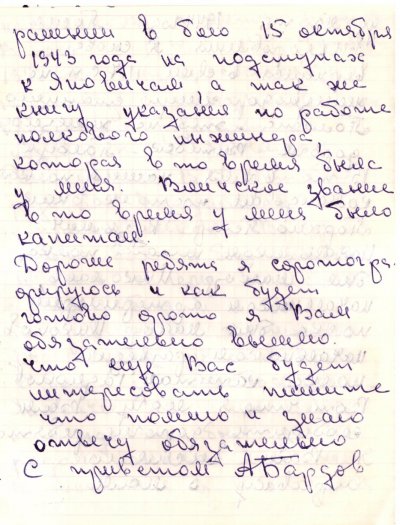 ранении в бою 15 октября
1943 года на подступах
к Яновичам, а так же
книгу указания по работе
полкового инженера,
которая в то время была
у меня. Воинское звание
в то время у меня было
капитан.
Дорогие ребята я сфотогра-
фируюсь и как будет
готово фото я Вам
обязательно вышлю.
что еще Вас будет
интересовать пишите
что помню и знаю
отвечу обязательно
С приветом АБардов